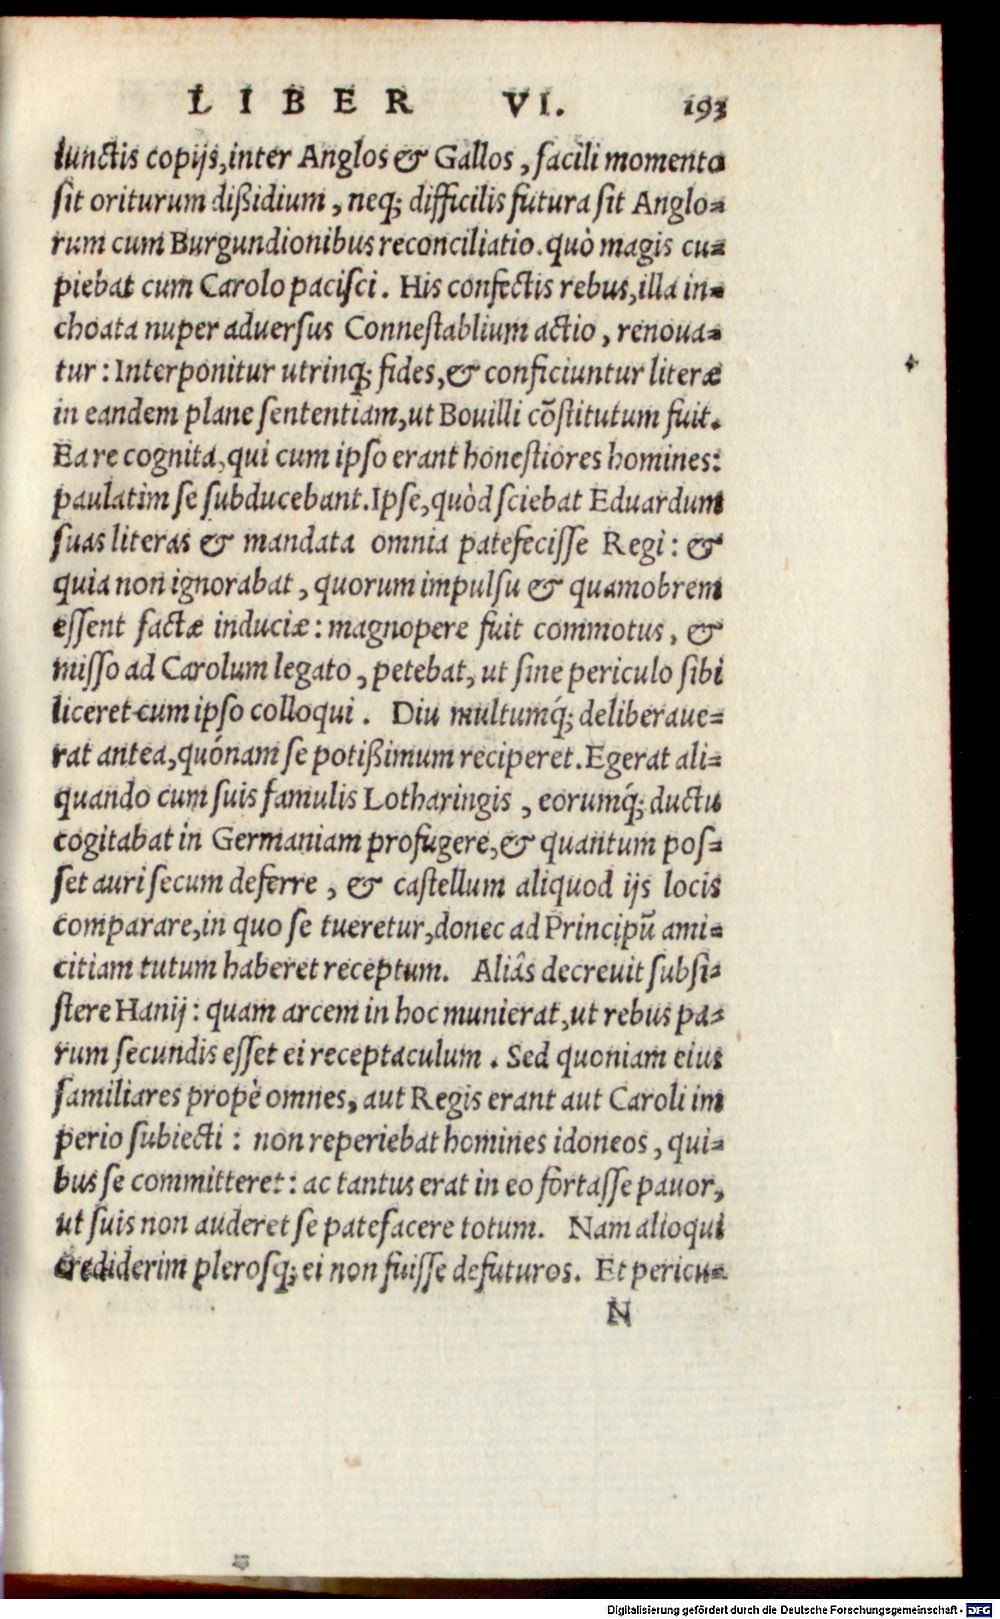 LIBER VI. 193
iunctis copijs, inter Anglos & Gallos, facili momento
sit oriturum dißidium, neq; difficilis futura sit Anglo-
rum cum Burgundionibus reconciliatio. quò magis cu-
piebat cum Carolo pacisci. His confectis rebus, illa in-
choata nuper aduersus Connestablium actio, renoua-
tur: Interponitur utrinq; fides, & conficiuntur literæ
in eandem plane sententiam, ut Bouilli cõstitutum fuit.
Ea re cognita, qui cum ipso erant honestiores homines:
paulatim se subducebant. Ipse, quòd sciebat Eduardum
suas literas & mandata omnia patefecisse Regi: &
quia non ignorabat, quorum impulsu & quamobrem
essent factæ induciæ: magnopere fuit commotus, &
misso ad Carolum legato, petebat, ut sine periculo sibi
liceret cum ipso colloqui. Diu multumq́; deliberaue-
rat antea, quónam se potißimum reciperet. Egerat ali-
quando cum suis famulis Lotharingis, eorumq́; ductu
cogitabat in Germaniam profugere, & quantum pos-
set auri secum deferre, & castellum aliquod ijs locis
comparare, in quo se tueretur, donec ad Principũ ami-
citiam tutum haberet receptum. Aliâs decreuit subsi-
stere Hanij: quam arcem in hoc munierat, ut rebus pa-
rum secundis esset ei receptaculum. Sed quoniam eius
familiares propè omnes, aut Regis erant aut Caroli im
perio subiecti: non reperiebat homines idoneos, qui-
bus se committeret: ac tantus erat in eo fortasse pauor,
ut suis non auderet se patefacere totum. Nam alioqui
crediderim plerosq; ei non fuisse defuturos. Et pericu-
N
Digitalisierung gefördert durch die Deutsche Forschungsgemeinschaft - DFG